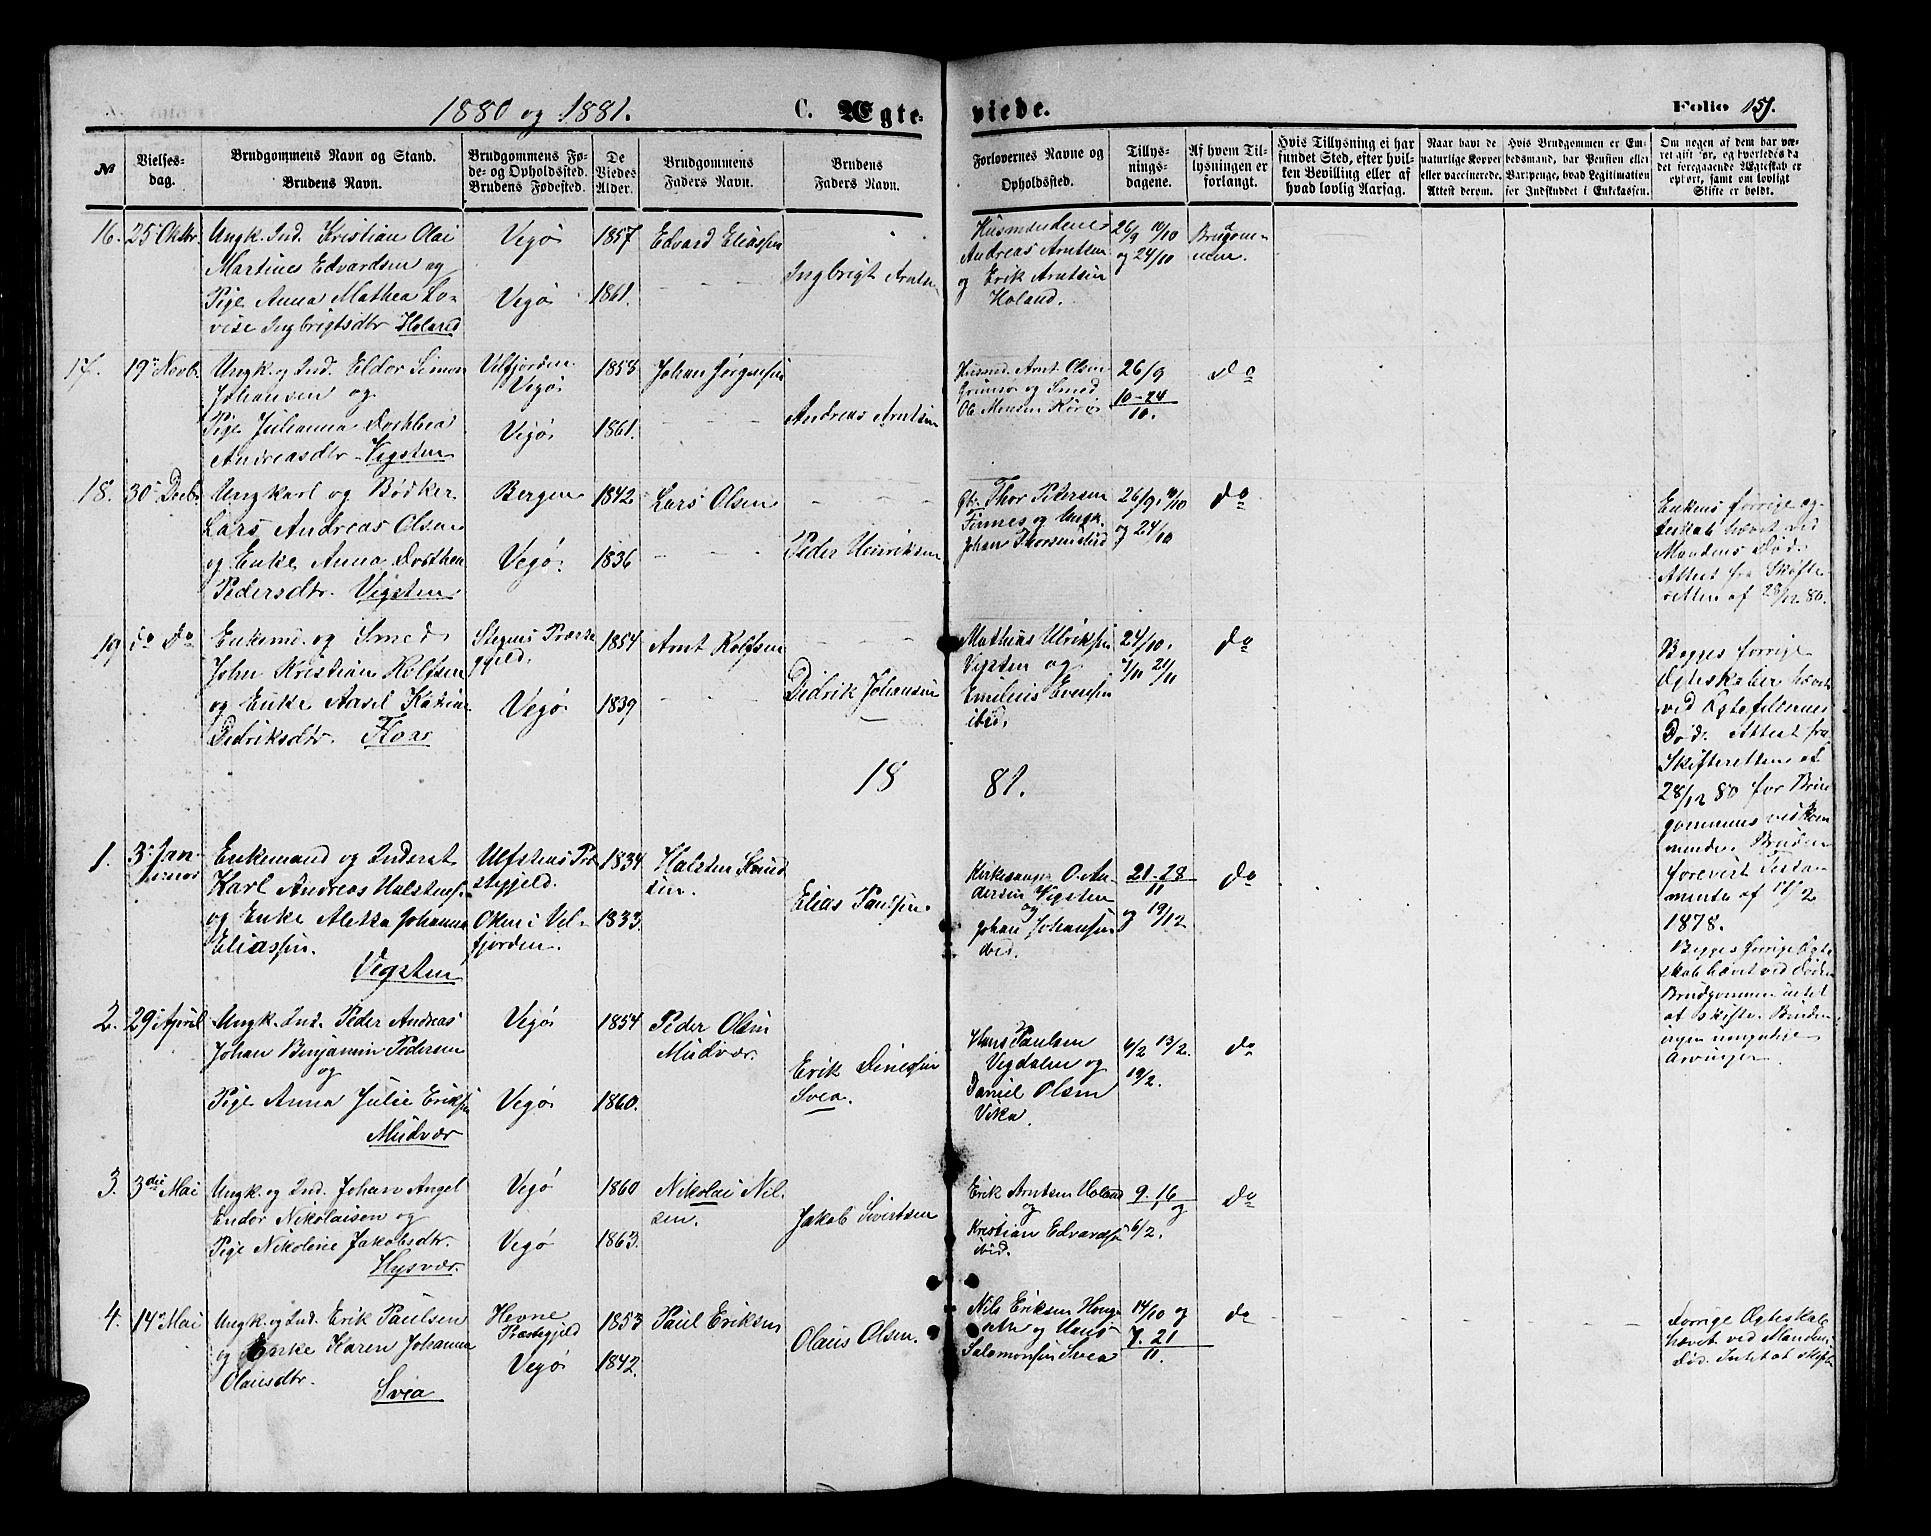 1880 og 1881.
C. Ægte-
viede.
Folio 157.
№
Vielses-
dag.
Brudgommens Navn og Stand.
Brudens Navn.
Brudgommens Fø-
de- og Opholdssted.
Brudens Fødested.
De
Viedes
Alder.
Brudgommens
Faders Navn.
Brudens
Faders Navn.
Forlovernes Navne og
Opholdssted.
Tillys-
nings-
dagene.
Af hvem Til-
lysningen er
forlangt.
Hvis Tillysning ei har
fundet Sted, efter hvil-
ken Bevilling eller af
hvad lovlig Aarsag.
Naar havt de
naturlige Kopper
eller vaccinerede.
Attest derom.
Hvis Brudgommen er En-
bedsmand, har Pension eller
Vartpenge, hvad Legitimation
for Indskuddet i Enkekassen.
Om nogen af dem har væ-
ret gift før, og hvorledes da
det foregaaende Ægteskab er
ophørt, samt om lovligt
Skifte er holdt.
16. 25 Oktbr.
Ungk. Ind. Kristian Olai
Martines Edvardsen og
Pige Anna Mathea Lo-
vise Ingbrigtsdtr Holand
Vegø
Vegø
1857
1861.
Edvard Eliassen
Ingbrigt Arntsen
Husmændene
Andreas Arntsen
og Erik Arntsen
Holand.
26/9 10/10
og 24/10
Brudgom-
men.
17. 19 Novb.
Ungk. og Ind. Eldor Simon
Johansen og
Pige Julianna Dorthea
Andreasdtr. Vegsten
Velfjorden.
Vegø
Vegø
1858
1861.
Johan Jørgensen
Andreas Arntsen
Husmd. Arnt Olsen
Grimsø og Smed
Ol. Monsen Kirø
26/9
10-24
10.
do
18. 30 Decbr
Ungkarl og Bødker
Lars Andreas Olsen
og Enke Anna Dorthea
Pedersdtr. Vegsten
Bergen
Vegø
1842
1836
Lars Olsen
Peder Henriksen
Gbr. Thor Pedersen
Finnes og Ungk.
Johan Thorsen ibid
26/9, 10/10
og 24/10
do
Enkens forrige æg-
teskab hævet ved
Mandens Død.
Attest fra Skifte-
retten af 28/12 80.
19 do Do
Enkemd. og Smed
John Kristian Rolfsen
og Enke Assel Katrine
Didriksdtr. Flore
Stegens Præste
gjeld.
Vegø
1854
1839
Arnt Rolfsen
Didrik Johansen
Mathias Ulriksen
Vegsten og
Emilius Evensen
ibid.
24/10.
7/11 21/11
do
Begges forrige
Ægteskaber hævet
ved Ægtefellernes
Død. Attest fra
Skifteretten af
28/12 80 for Brud
gommens vedkom
mende. Bruden
forevist Testa-
mente af 11/2
1878.
18 81.
1. 3 Jan-
uar
Enkemand og Inderst
Karl Andreas Halstens.
og Enke Aletta Johanna
Eliassen.
Vegsten
Ulfstens Præ
stegjeld.
Oken i Vel-
fjorden.
1834
1833
Halsten Knud
sen.
Elias Paulsen
Kirkesanger O. An-
dersen Vegsten
og
Johan Johansen
ibid.
21-28
11
og 19/12
do
Begges forrige Ægte
skab hævet ved Døden
Brudgommen intet
at skifte. Bruden
ingen umyndige
Arvinger
2. 29 April
Ungk. Ind. Peder Andreas
Johan Benjamin Pedersen
og
Pige Anna Julie Eriksen
Mudvær
Vegø
Vegø
1854
1860.
Peder Olsen
Mudvær.
Erik Dinesen
Svea.
Hans Paulsen
Vegdalen og
Daniel Olsen
Vika.
6/2 13/2.
19/2.
do
3. 3die Mai
Ungk. og Ind. Johan Angel
Endor Nikolaisen og
Pige Nikoline Jakobsdtr.
Hysvær.
Vegø
Vegø
1860
1863.
Nikolai Nil-
sen.
Jakob Sivertsen
Erik Arntsen Holand
og
Kristian Edvardsen
ibid.
9. 16
og
6/2.
do
4. 14 Mai
Ungk. og Ind. Erik Paulsen
og Enke Karen Johanna
Olausdtr. Svea
Hevne
Præstegjeld
Vegø
1853
1842.
Paul Eriksen
Olaus Olsen.
Nils Eriksen Houge
og Hans
Salamonsen Svea
14/10 og
7. 21
11.
do
Forrige Ægteskab
hævet ved Mandens
Død. Intet at skifte